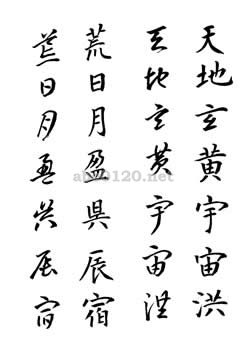 天地玄黄宇宙洪
天地玄黄宇宙洪
荒日月盈昃辰宿
荒日月盈昃辰宿